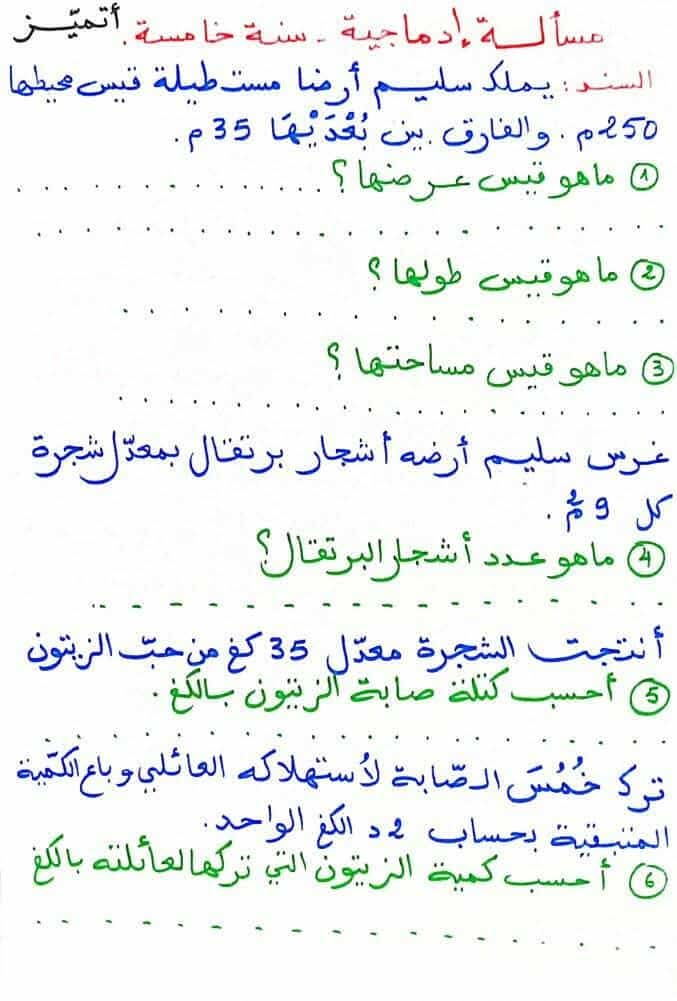 مسألة إدماجية - سنة خامسة. أتميّز
السند: يملك سليم أرضا مستطيلة قيس محيطها
250م. والفارق بين بُعْدَيْهَا 35م.
① ما هو قيس عرضها؟
② ما هو قيس طولها؟
③ ما هو قيس مساحتها؟
غرس سليم أرضه أشجار برتقال بمعدّل شجرة
كل 9 م².
④ ما هو عدد أشجار البرتقال؟
أنتجت الشجرة معدّل 35 كغ من حبّ الزيتون
⑤ أحسب كتلة صابة الزيتون بالكغ.
ترك خُمُسَ الصّابة لاستهلاكه العائلي وباع الكمّية
المتبقية بحساب 2د الكغ الواحد.
⑥ أحسب كمية الزيتون التي تركها لعائلته بالكغ